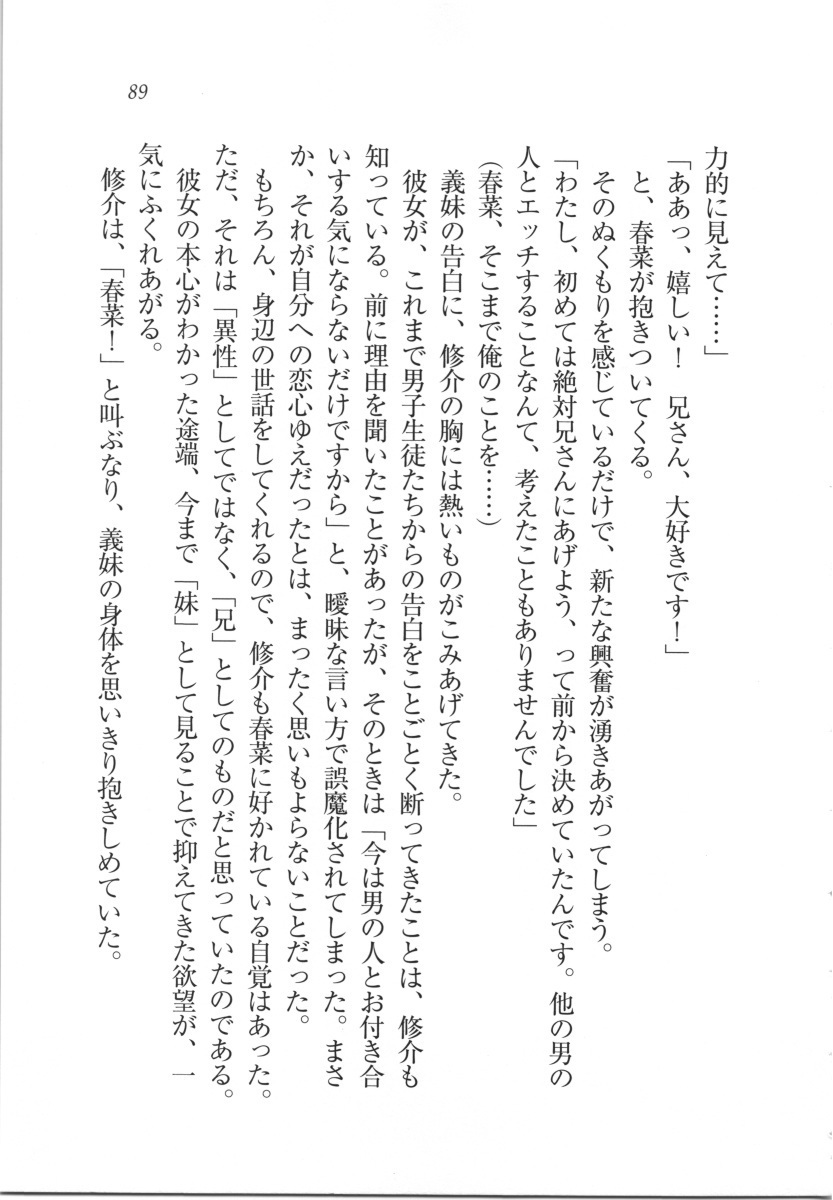 力的に見えて……」
「ああっ、嬉しい！　兄さん、大好きです！」
と、春菜が抱きついてくる。
そのぬくもりを感じているだけで、新たな興奮が湧きあがってしまう。
「わたし、初めては絶対兄さんにあげよう、って前から決めていたんです。他の男の
人とエッチすることなんて、考えたこともありませんでした」
（春菜、そこまで俺のことを……）
義妹の告白に、修介の胸には熱いものがこみあげてきた。
彼女が、これまで男子生徒たちからの告白をことごとく断ってきたことは、修介も
知っている。前に理由を聞いたことがあったが、そのときは「今は男の人とお付き合
いする気にならないだけですから」と、曖昧な言い方で誤魔化されてしまった。まさ
か、それが自分への恋心ゆえだったとは、まったく思いもよらないことだった。
もちろん、身辺の世話をしてくれるので、修介も春菜に好かれている自覚はあった。
ただ、それは「異性」としてではなく、「兄」としてのものだと思っていたのである。
彼女の本心がわかった途端、今まで「妹」として見ることで抑えてきた欲望が、一
気にふくれあがる。
修介は、「春菜！」と叫ぶなり、義妹の身体を思いきり抱きしめていた。
89